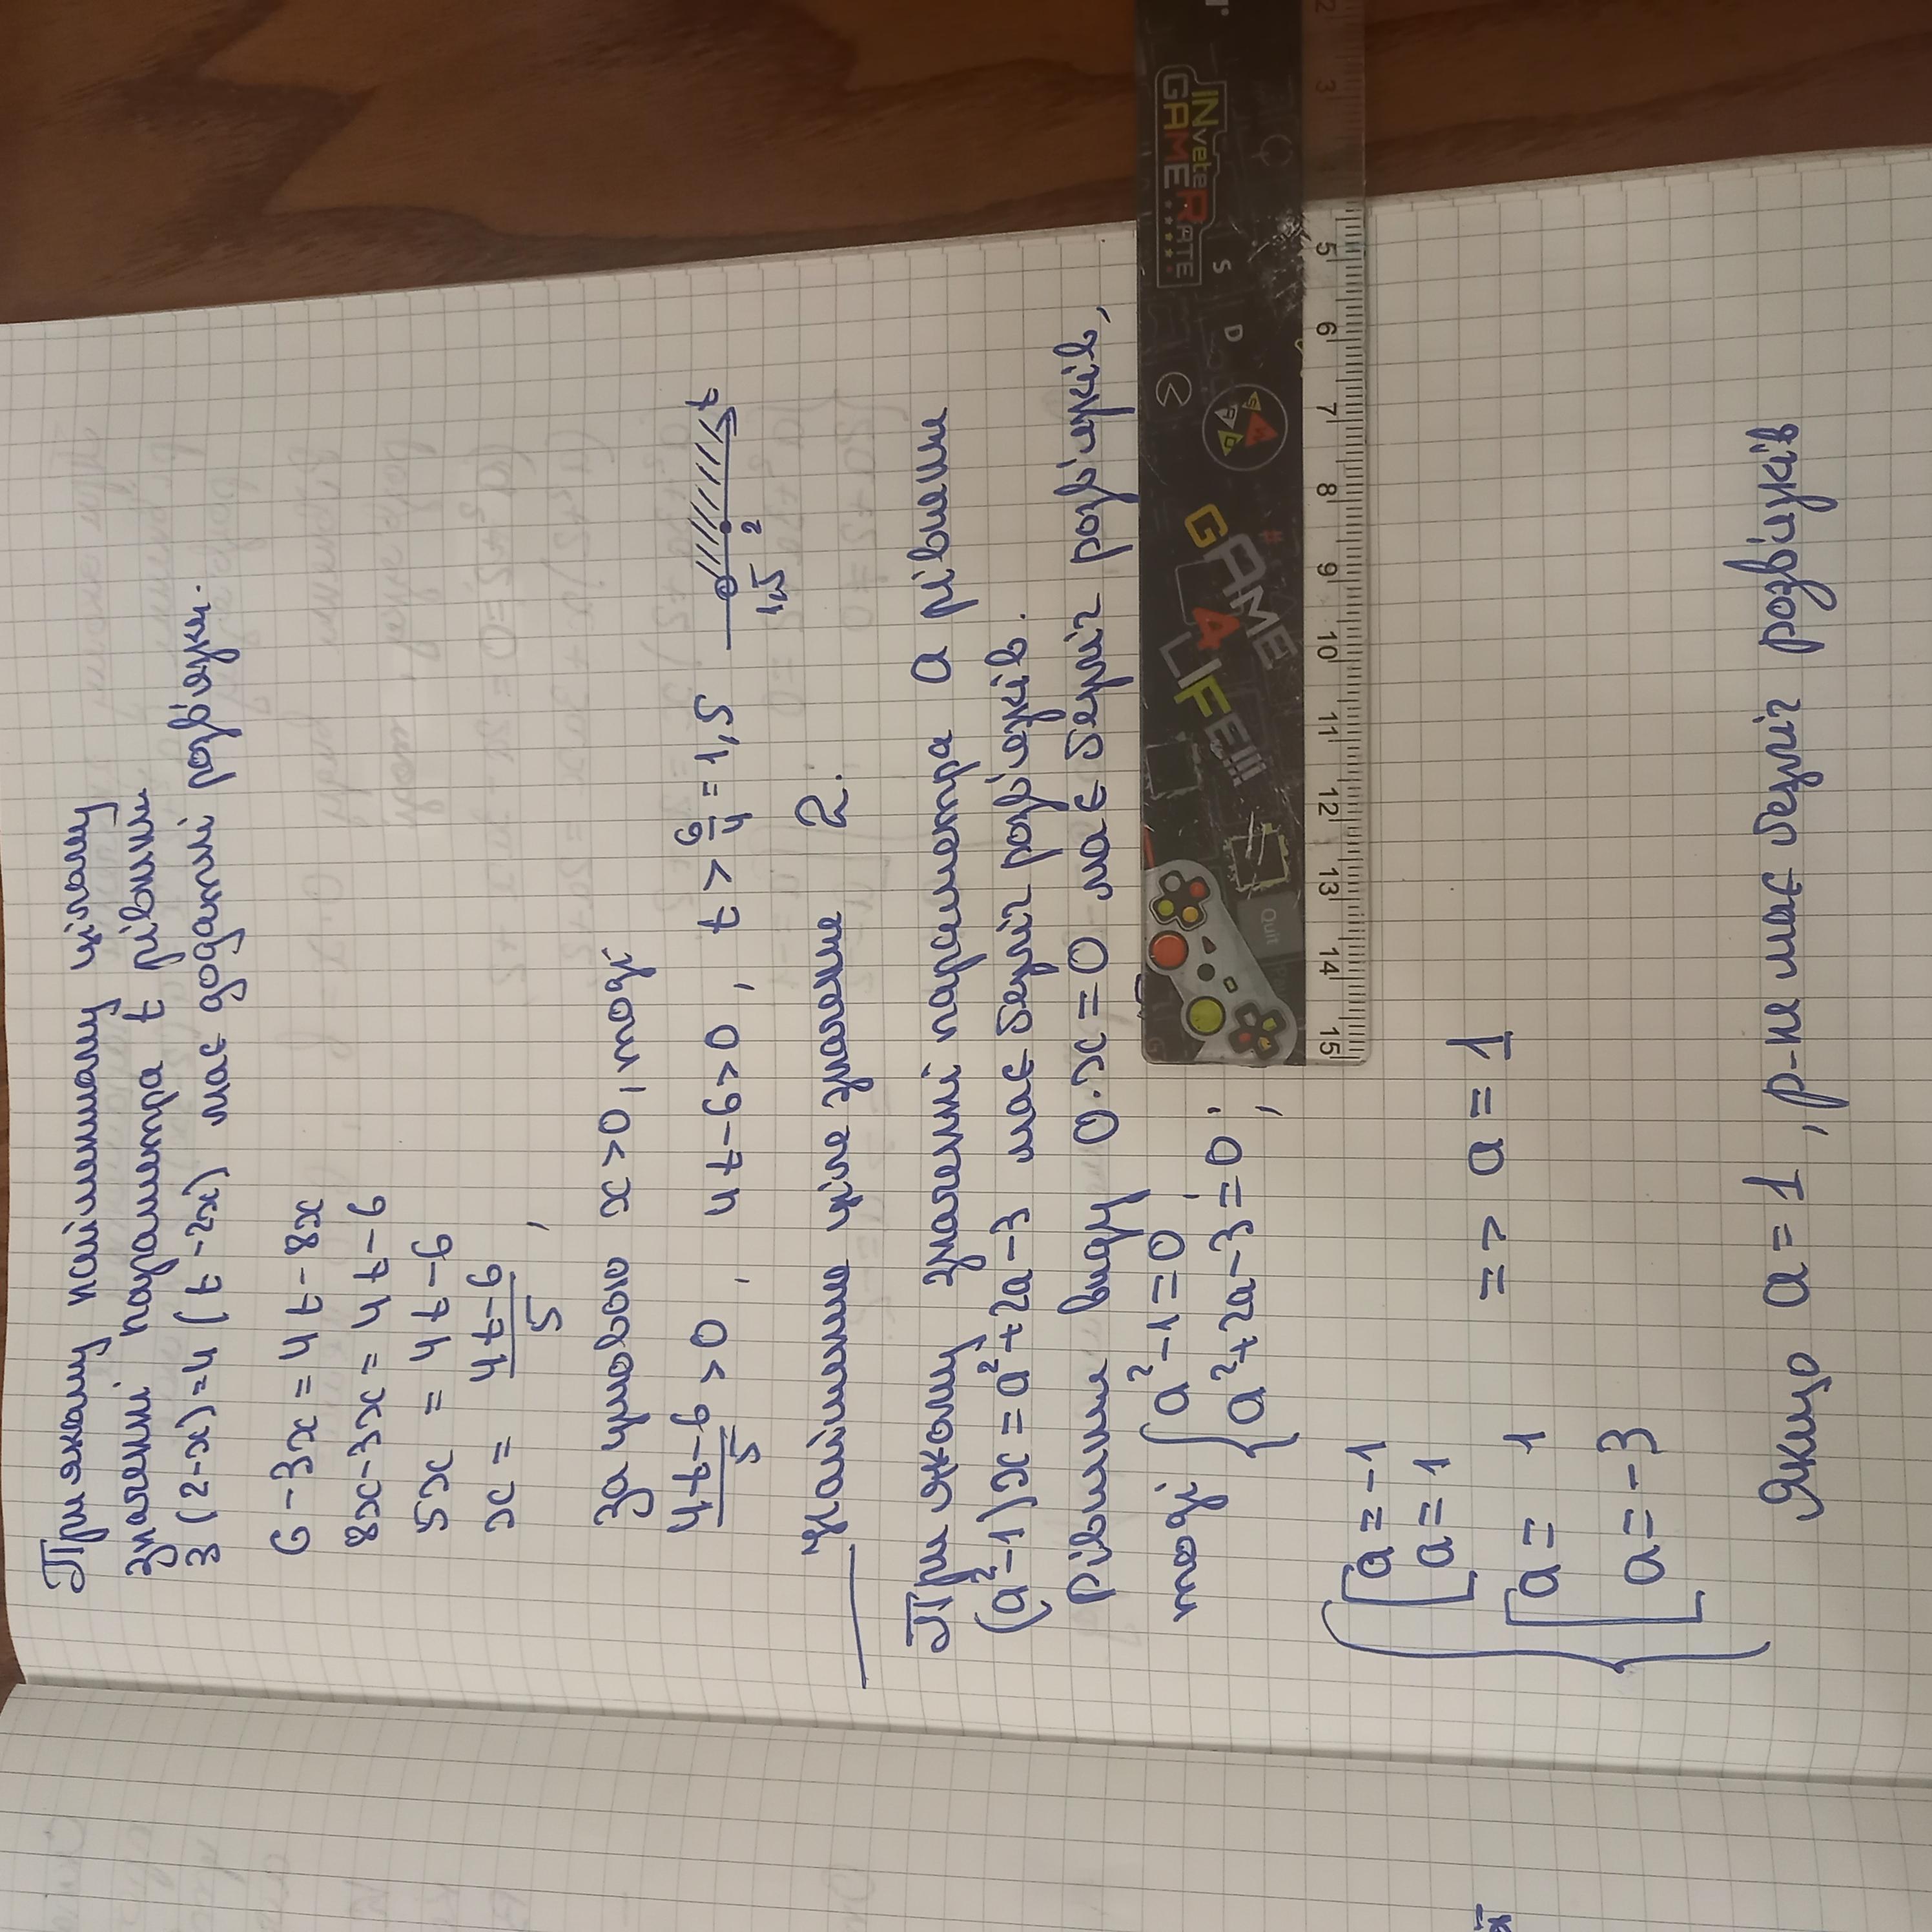 При якому найменшому цілому
значенні параметра t рівняння
3(2-x)=4(t-2x) має додатні розв'язки.
6-3x=4t-8x
8x-3x=4t-6
5x=4t-6
x=4t-6/5,
за умовою x>0, тоді
4t-6/5>0, 4t-6>0, t>6/4=1,5
1,5 2 t
найменше ціле значення 2.
При якому значенні параметра a рівняння
(a²-1)x=a²+2a-3 має безліч розв'язків.
Рівняння виду 0·x=0 має безліч розв'язків,
тоді {a²-1=0;
a²+2a-3=0;
[a=-1
a=1
[a=1
a=-3
=> a=1
Якщо a=1, р-ня має безліч розв'язків
INveteRATE
GAME
S
D
GAME
4
LIFE!!!
Quit
2 3 5 6 7 8 9 10 11 12 13 14 15